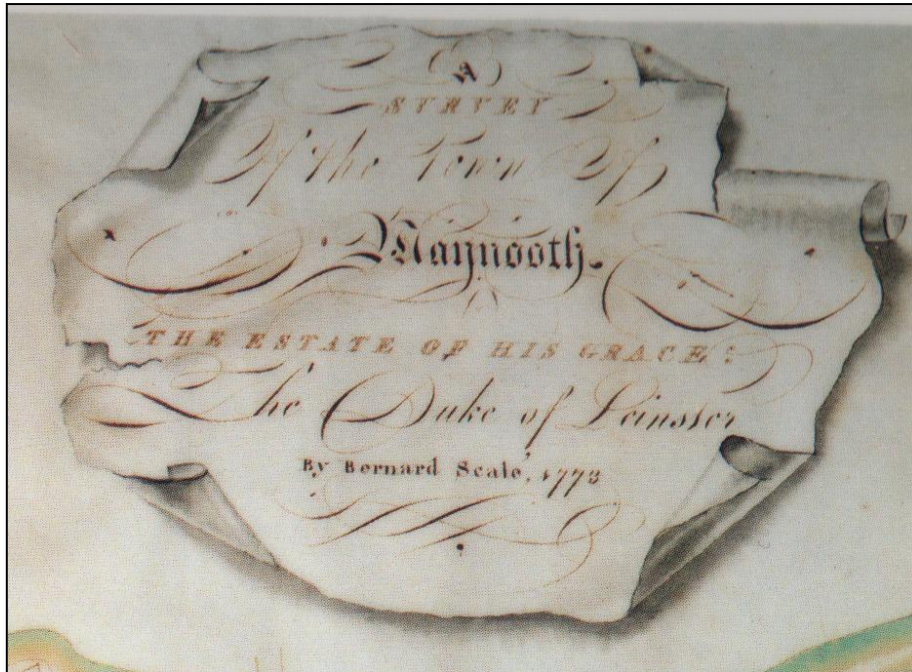 A
SURVEY
Of the Town Of
Maynooth.
THE ESTATE OF HIS GRACE
The Duke of Leinster
By Bernard Scalé, 1773